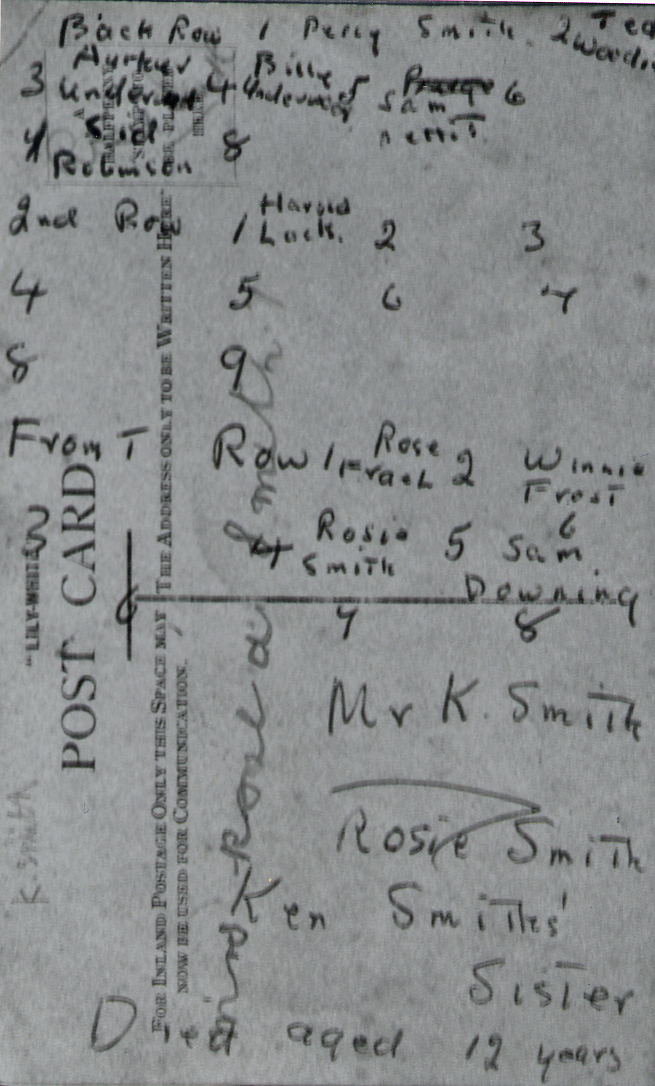 Back Row 1 Percy Smith. 2 Ted
3 4 Billy 5 Sam 6
7 Sid 8
Robinson
2nd Row 1 Harold Lack. 2 3
4 5 6 7
8 9
Front Row 1 Rose 2 Winnie Frost
3 4 Rosie Smith 5 Sam Downing 6
7 8
Mr K. Smith
Rosie Smith
Ken Smiths'
Sister
Died aged 12 years
"LILY-WHITE"
POST CARD
FOR INLAND POSTAGE ONLY THIS SPACE MAY
NOW BE USED FOR COMMUNICATION.
THE ADDRESS ONLY TO BE WRITTEN HERE
K. Smith